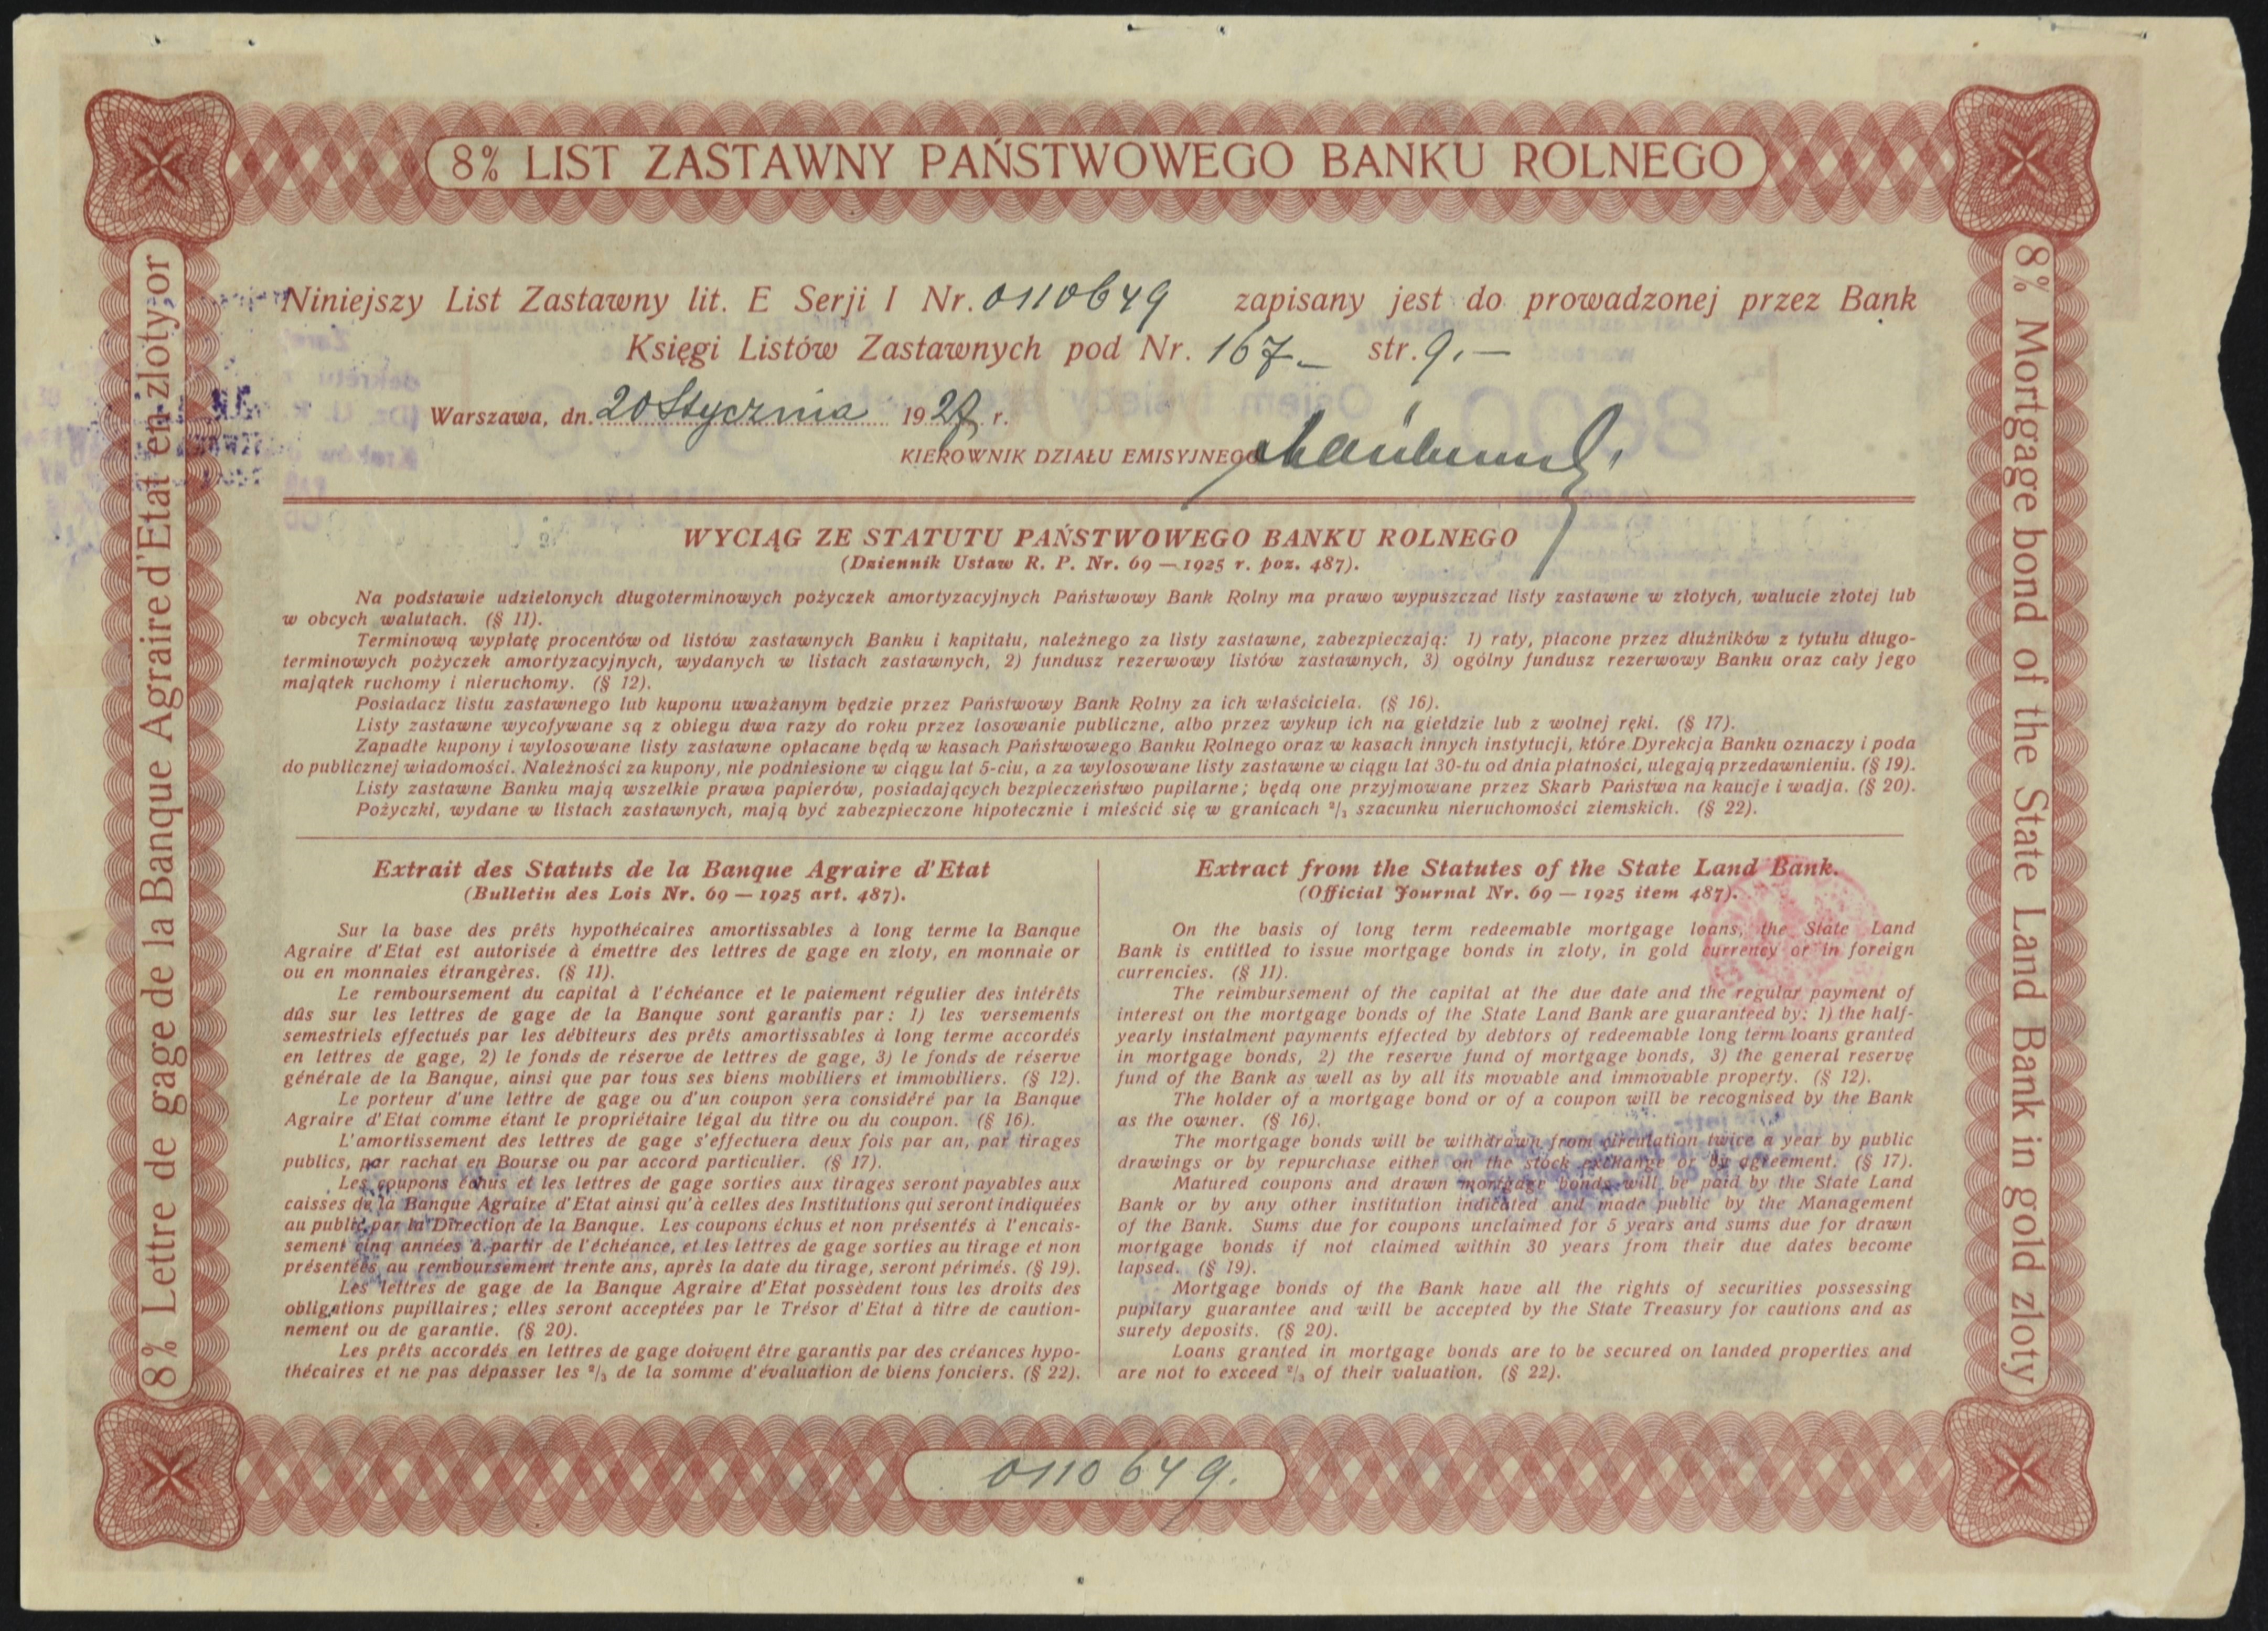 8% LIST ZASTAWNY PAŃSTWOWEGO BANKU ROLNEGO
8% Lettre de gage de la Banque Agraire d'Etat en zloty-or
8% Mortgage bond of the State Land Bank in gold zloty
Niniejszy List Zastawny lit. E Serji I Nr. 0110649 zapisany jest do prowadzonej przez Bank
Księgi Listów Zastawnych pod Nr. 167 str. 9.—
Warszawa, dn. 20 Stycznia 192 r.
KIEROWNIK DZIAŁU EMISYJNEGO
WYCIĄG ZE STATUTU PAŃSTWOWEGO BANKU ROLNEGO
(Dziennik Ustaw R. P. Nr. 69 — 1925 r. poz. 487).
Na podstawie udzielonych długoterminowych pożyczek amortyzacyjnych Państwowy Bank Rolny ma prawo wypuszczać listy zastawne w złotych, walucie złotej lub
w obcych walutach. (§ 11).
Terminową wypłatę procentów od listów zastawnych Banku i kapitału, należnego za listy zastawne, zabezpieczają: 1) raty, płacone przez dłużników z tytułu długo-
terminowych pożyczek amortyzacyjnych, wydanych w listach zastawnych, 2) fundusz rezerwowy listów zastawnych, 3) ogólny fundusz rezerwowy Banku oraz cały jego
majątek ruchomy i nieruchomy. (§ 12).
Posiadacz listu zastawnego lub kuponu uważanym będzie przez Państwowy Bank Rolny za ich właściciela. (§ 16).
Listy zastawne wycofywane są z obiegu dwa razy do roku przez losowanie publiczne, albo przez wykup ich na giełdzie lub z wolnej ręki. (§ 17).
Zapadłe kupony i wylosowane listy zastawne opłacane będą w kasach Państwowego Banku Rolnego oraz w kasach innych instytucji, które Dyrekcja Banku oznaczy i poda
do publicznej wiadomości. Należności za kupony, nie podniesione w ciągu lat 5-ciu, a za wylosowane listy zastawne w ciągu lat 30-tu od dnia płatności, ulegają przedawnieniu. (§ 19).
Listy zastawne Banku mają wszelkie prawa papierów, posiadających bezpieczeństwo pupilarne; będą one przyjmowane przez Skarb Państwa na kaucje i wadja. (§ 20).
Pożyczki, wydane w listach zastawnych, mają być zabezpieczone hipotecznie i mieścić się w granicach ²/₃ szacunku nieruchomości ziemskich. (§ 22).
Extrait des Statuts de la Banque Agraire d'Etat
(Bulletin des Lois Nr. 69 — 1925 art. 487).
Sur la base des prêts hypothécaires amortissables à long terme la Banque
Agraire d'Etat est autorisée à émettre des lettres de gage en zloty, en monnaie or
ou en monnaies étrangères. (§ 11).
Le remboursement du capital à l'échéance et le paiement régulier des intérêts
dûs sur les lettres de gage de la Banque sont garantis par: 1) les versements
semestriels effectués par les débiteurs des prêts amortissables à long terme accordés
en lettres de gage, 2) le fonds de réserve de lettres de gage, 3) le fonds de réserve
générale de la Banque, ainsi que par tous ses biens mobiliers et immobiliers. (§ 12).
Le porteur d'une lettre de gage ou d'un coupon sera considéré par la Banque
Agraire d'Etat comme étant le propriétaire légal du titre ou du coupon. (§ 16).
L'amortissement des lettres de gage s'effectuera deux fois par an, par tirages
publics, par rachat en Bourse ou par accord particulier. (§ 17).
Les coupons échus et les lettres de gage sorties aux tirages seront payables aux
caisses de la Banque Agraire d'Etat ainsi qu'à celles des Institutions qui seront indiquées
au public par la Direction de la Banque. Les coupons échus et non présentés à l'encais-
sement cinq années à partir de l'échéance, et les lettres de gage sorties au tirage et non
présentées au remboursement trente ans, après la date du tirage, seront périmés. (§ 19).
Les lettres de gage de la Banque Agraire d'Etat possèdent tous les droits des
obligations pupillaires; elles seront acceptées par le Trésor d'Etat à titre de caution-
nement ou de garantie. (§ 20).
Les prêts accordés en lettres de gage doivent être garantis par des créances hypo-
thécaires et ne pas dépasser les ²/₃ de la somme d'évaluation de biens fonciers. (§ 22).
Extract from the Statutes of the State Land Bank.
(Official Journal Nr. 69 — 1925 item 487).
On the basis of long term redeemable mortgage loans, the State Land
Bank is entitled to issue mortgage bonds in zloty, in gold currency or in foreign
currencies. (§ 11).
The reimbursement of the capital at the due date and the regular payment of
interest on the mortgage bonds of the State Land Bank are guaranteed by: 1) the half-
yearly instalment payments effected by debtors of redeemable long term loans granted
in mortgage bonds, 2) the reserve fund of mortgage bonds, 3) the general reserve
fund of the Bank as well as by all its movable and immovable property. (§ 12).
The holder of a mortgage bond or of a coupon will be recognised by the Bank
as the owner. (§ 16).
The mortgage bonds will be withdrawn from circulation twice a year by public
drawings or by repurchase either on the stock exchange or by agreement. (§ 17).
Matured coupons and drawn mortgage bonds will be paid by the State Land
Bank or by any other institution indicated and made public by the Management
of the Bank. Sums due for coupons unclaimed for 5 years and sums due for drawn
mortgage bonds if not claimed within 30 years from their due dates become
lapsed. (§ 19).
Mortgage bonds of the Bank have all the rights of securities possessing
pupilary guarantee and will be accepted by the State Treasury for cautions and as
surety deposits. (§ 20).
Loans granted in mortgage bonds are to be secured on landed properties and
are not to exceed ²/₃ of their valuation. (§ 22).
0110649.